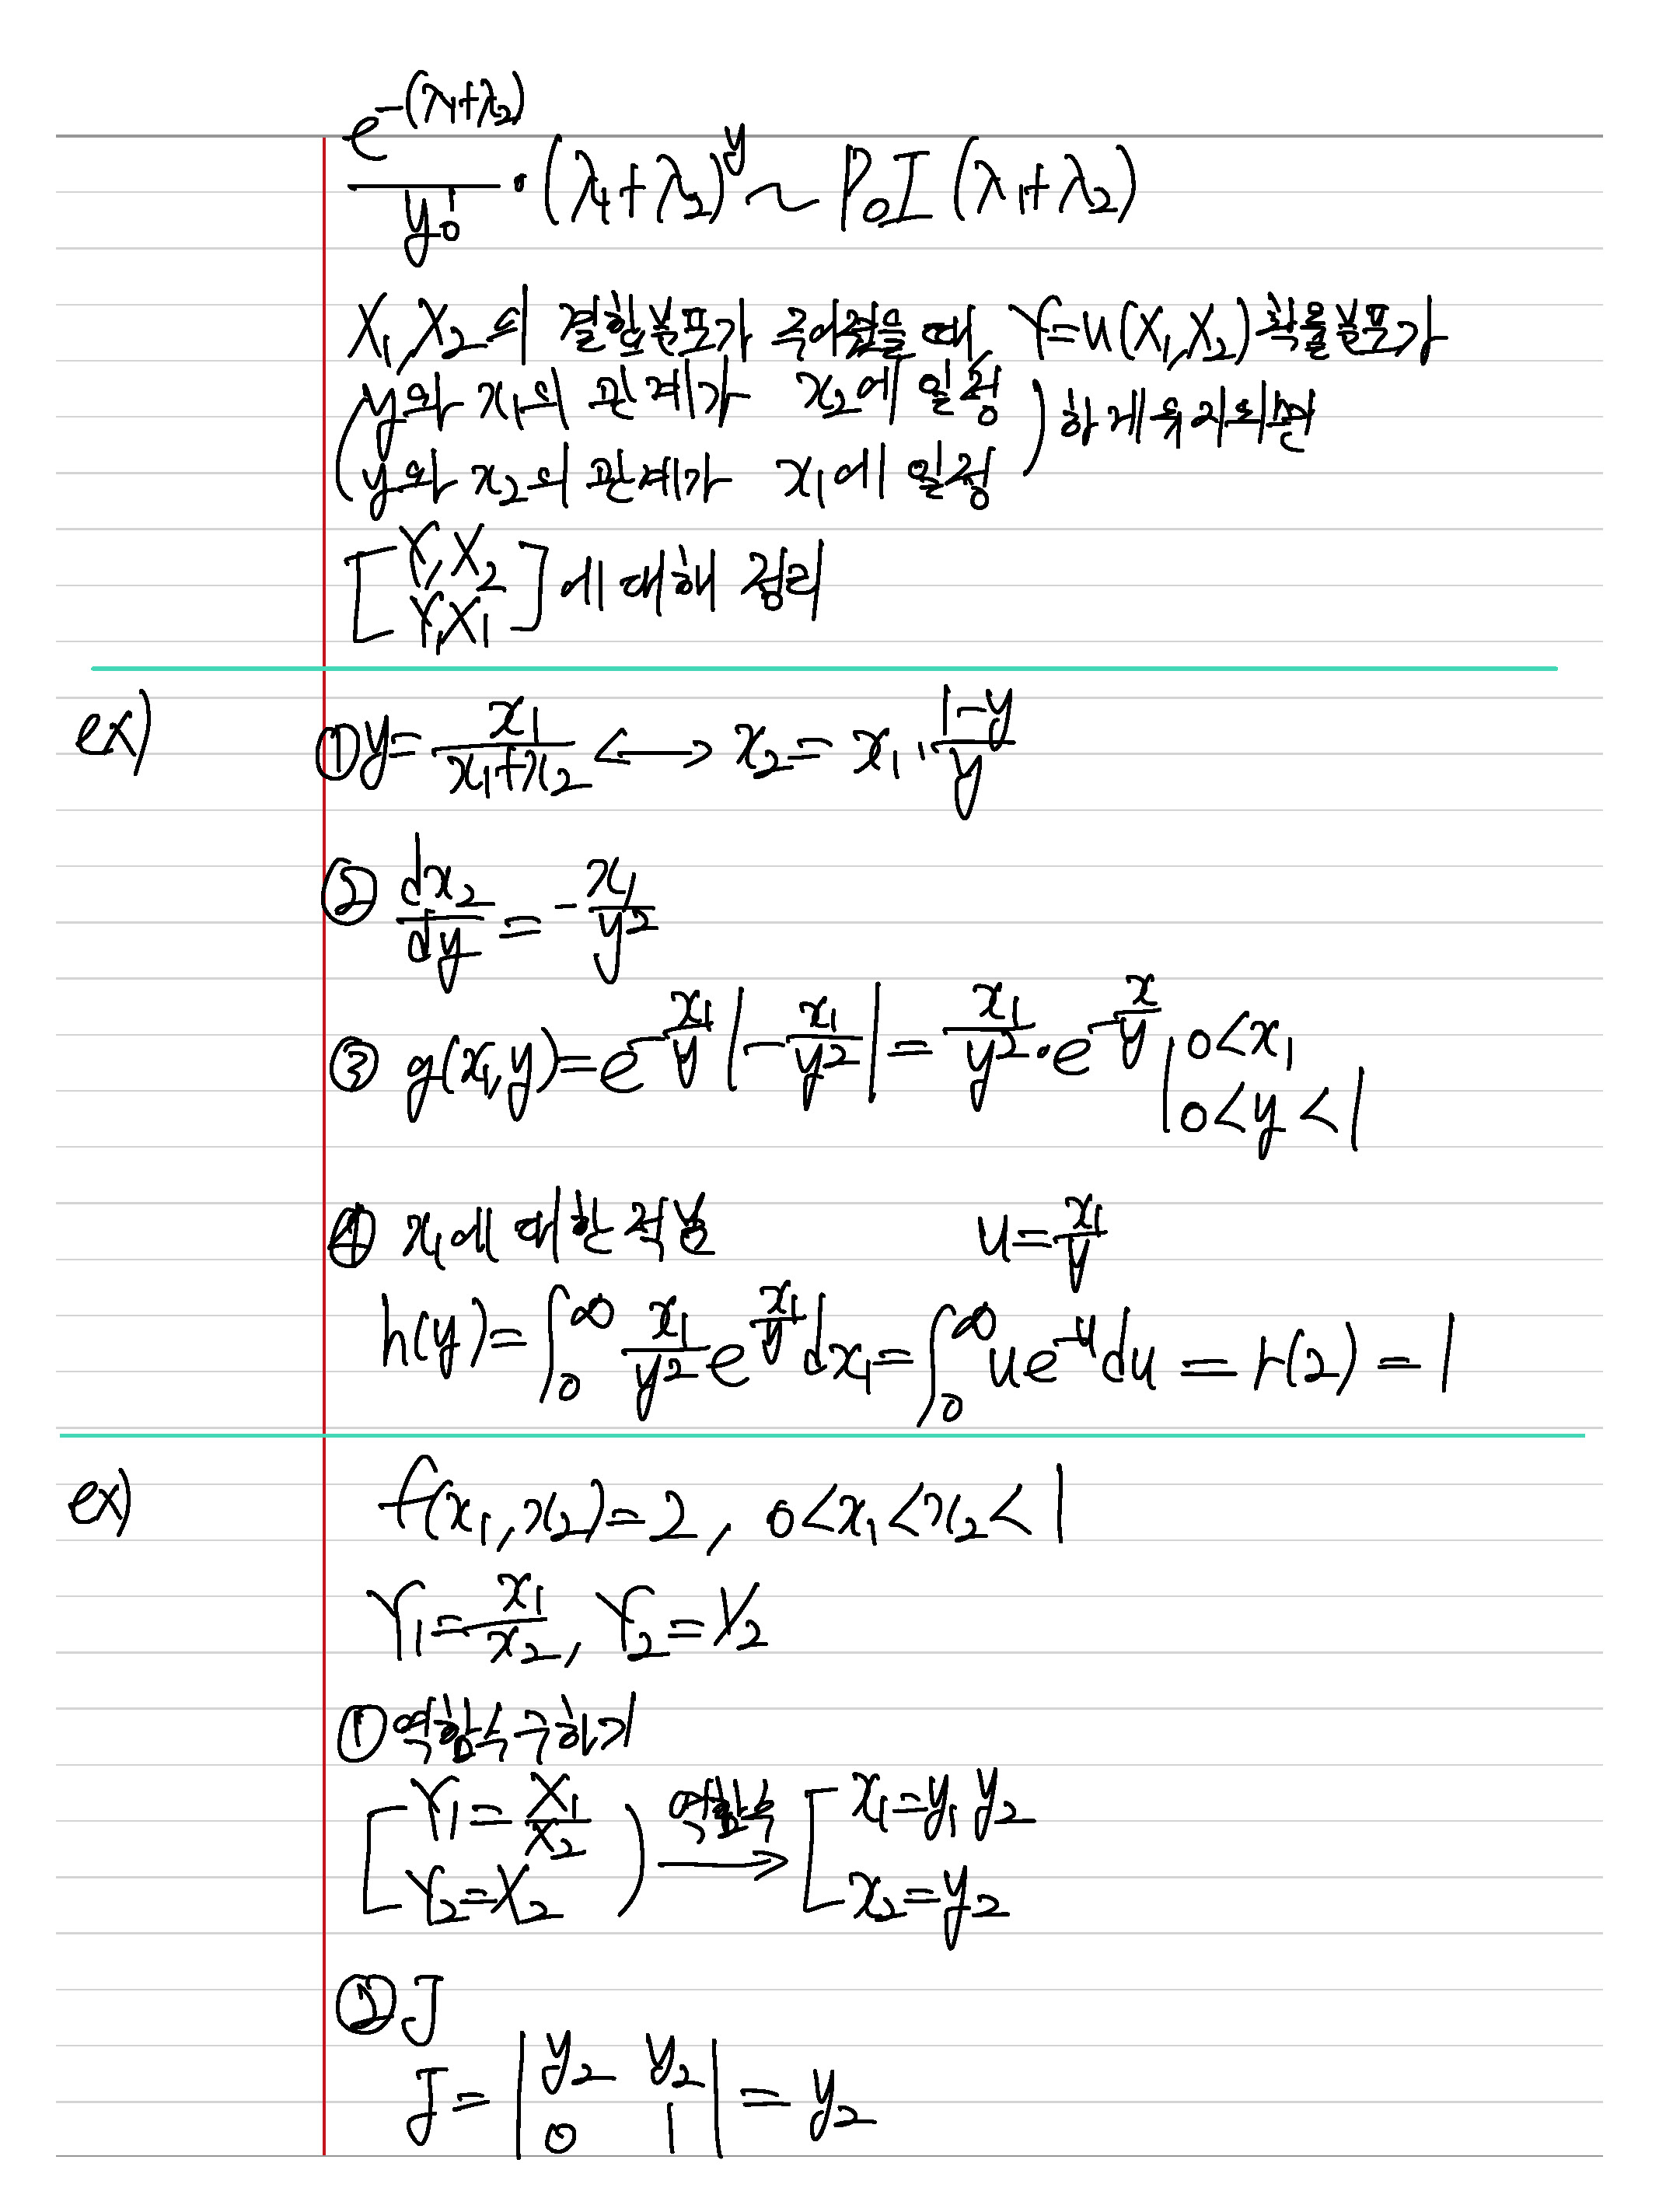 e^-(λ1+λ2) / y! · (λ1+λ2)^y ~ POI (λ1+λ2)
X1, X2의 결합분포가 주어졌을 때, Y=u(X1,X2) 확률분포가
(y와 x1의 관계가 x2에 일정
y와 x2의 관계가 x1에 일정) 하게 유지되면
[Y, X2
Y, X1] 에 대해 정리
ex) ① y = x1 / (x1+x2) ⟷ x2 = x1 · (1-y)/y
② dx2/dy = -x1/y²
③ g(x1,y) = e^(-x1/y) |-x1/y²| = x1/y² · e^(-x/y), 0<x1
0<y<1
④ x1에 대한 적분 u = x1/y
h(y) = ∫0^∞ x1/y² e^(x1/y) dx1 = ∫0^∞ ue^-u du = Γ(2) = 1
ex) f(x1, x2) = 2, 0<x1<x2<1
Y1 = x1/x2, Y2 = X2
① 역함수 구하기
[Y1 = X1/X2
Y2 = X2) 역함수 → [x1 = y1 y2
x2 = y2
② J
J = |y2 y2
0 1| = y2